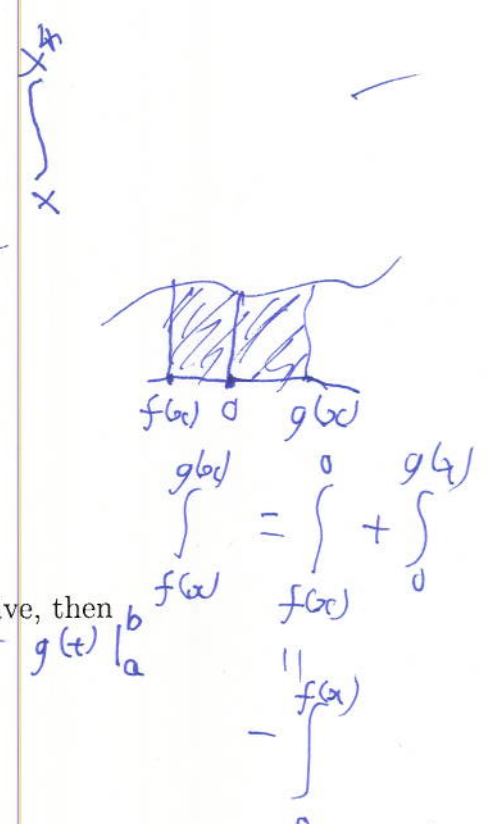 ∫_x^{x^4}
f(x) 0 g(x)
∫_{f(x)}^{g(x)} = ∫_{f(x)}^0 + ∫_0^{g(x)}
ve, then
g(t) |_a^b
||
- ∫^{f(x)}